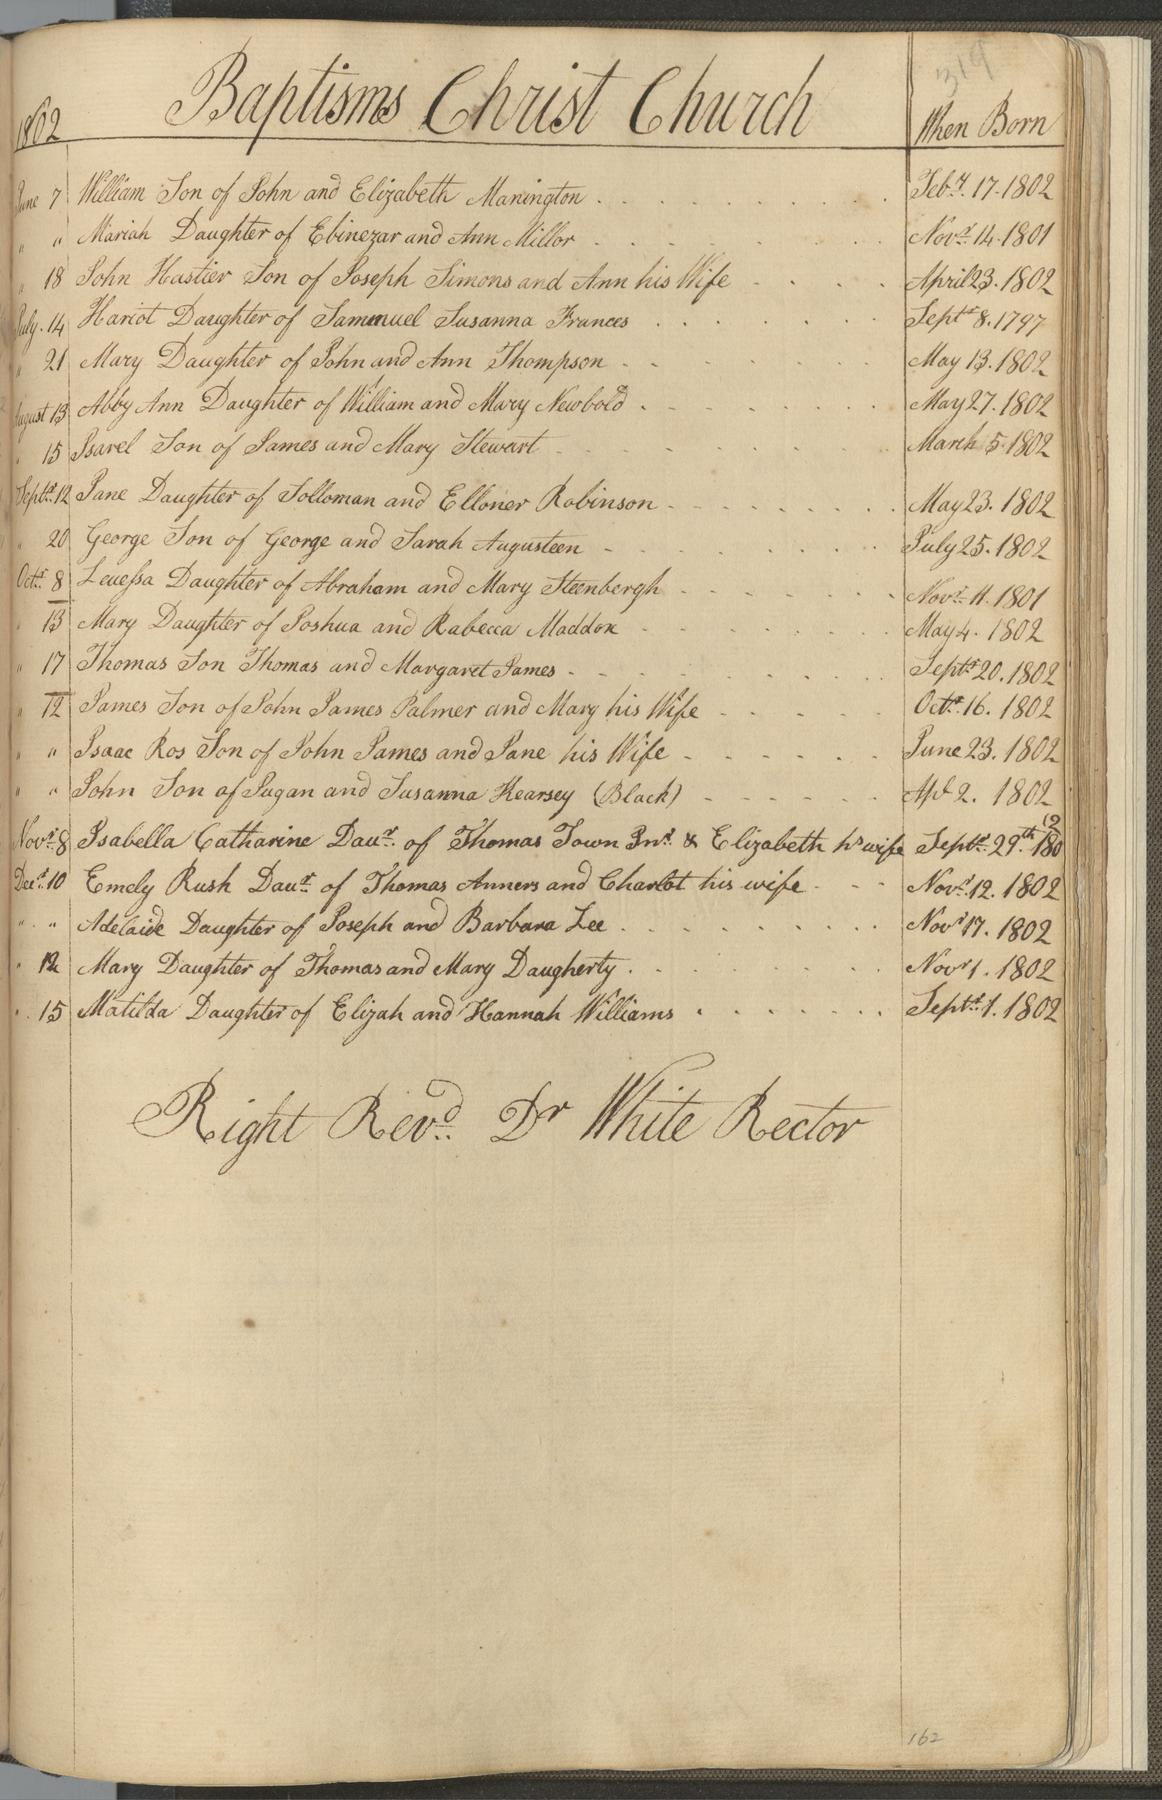 319
1802 Baptisms Christ Church When Born
June 7 William Son of John and Elizabeth Manington Feby. 17. 1802
" " Mariah Daughter of Ebinezar and Ann Millor Novr. 14. 1801
" 18 John Hastier Son of Joseph Simons and Ann his Wife April 23. 1802
July. 14 Hariot Daughter of Sammuel Susanna Frances Septr 8. 1797
" 21 Mary Daughter of John and Ann Thompson May 13. 1802
August 13 Abby Ann Daughter of William and Mary Newbold May 27. 1802
" 15 Isarel Son of James and Mary Stewart March 5 1802
Septr. 12 Jane Daughter of Solloman and Elloner Robinson May 23. 1802
" 20 George Son of George and Sarah Augusteen July 25. 1802
Octr. 8 Levessa Daughter of Abraham and Mary Steenbergh Novr. 11. 1801
" 13 Mary Daughter of Joshua and Rabecca Maddox May 4. 1802
" 17 Thomas Son Thomas and Margaret James Septr. 20. 1802
" 12 James Son of John James Palmer and Mary his Wife Octr. 16. 1802
" " Isaac Ros Son of John James and Jane his Wife June 23. 1802
" " John Son of Jugan and Susanna Kearsey (Black) Apl. 2. 1802
Novr. 8 Isabella Catharine Daur. of Thomas Town Jnr. & Elizabeth hs wife Septr. 29th. 1802
Decr. 10 Emely Rush Daur. of Thomas Anners and Charlot his wife Novr. 12. 1802
" " Adelaide Daughter of Joseph and Barbara Lee Novr 17. 1802
" 12 Mary Daughter of Thomas and Mary Daugherty Novr 1. 1802
" 15 Matilda Daughter of Elizah and Hannah Williams Septr. 1. 1802
Right Revd. Dr White Rector
162